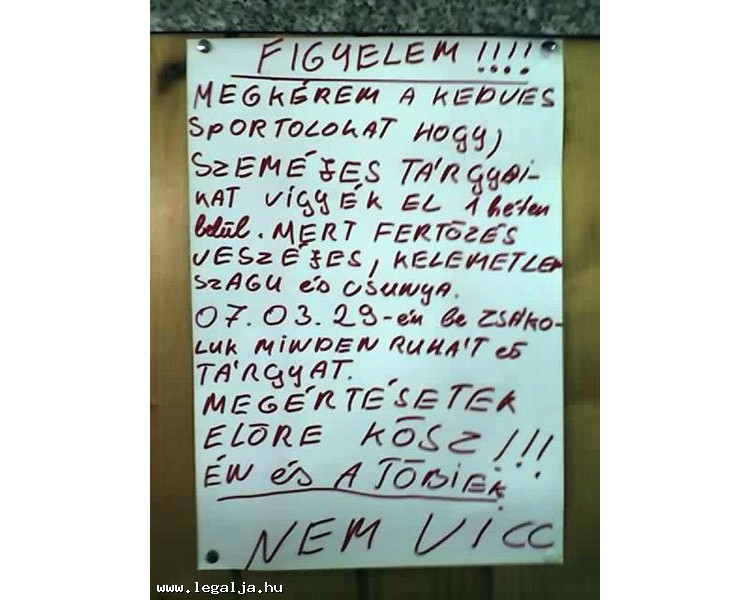 FIGYELEM !!!!
MEGKÉREM A KEDVES
SPORTOLOKAT HOGY,
SZEMÉJES TÁRGYAI-
KAT VIGYÉK EL 1 héten
belül. MERT FERTŐZÉS
VESZÉJES, KELEMETLEN
SZAGU éS CSUNYA.
07.03.29-én be ZSÁKO-
LUK MINDEN RUHÁT éS
TÁRGYAT.
MEGÉRTÉSETEK
ELŐRE KŐSZ!!!
ÉN éS A TŐBIEK
NEM VICC
www.legalja.hu